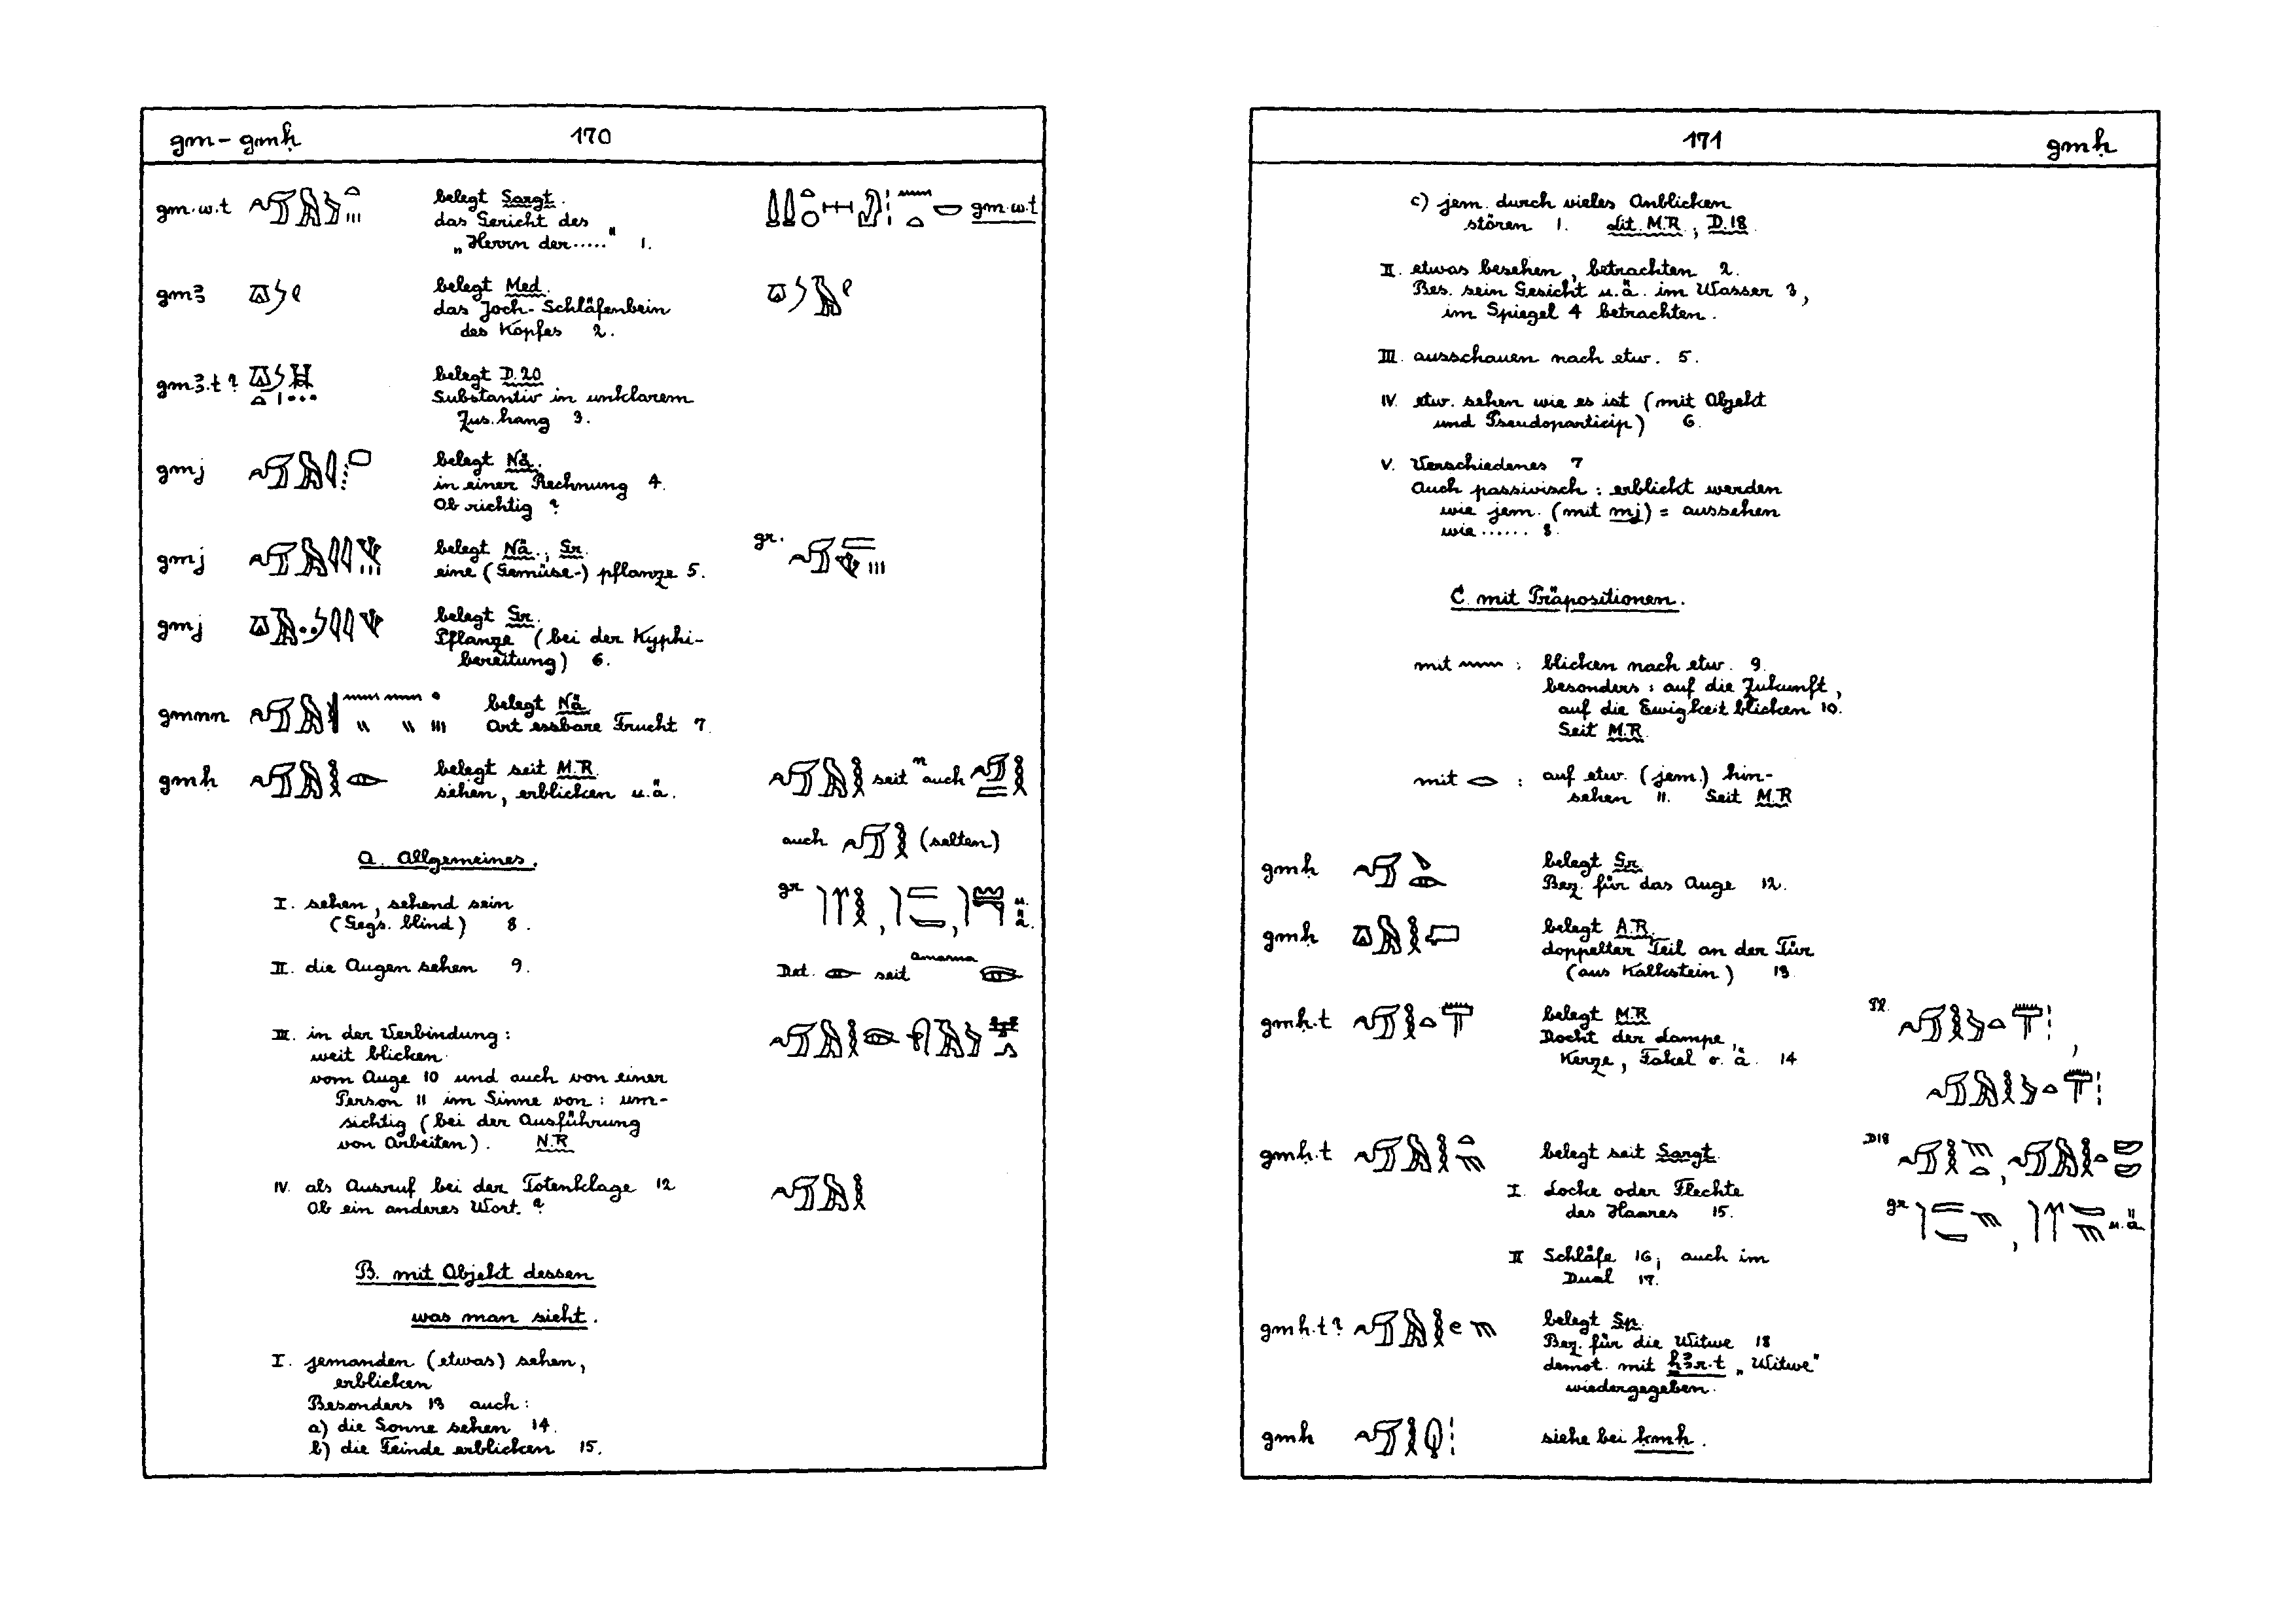 gm – gmḥ 170
gm.w.t belegt Sargt.
das Gericht des
„Herrn der ....." 1.
gm.w.t
gmꜣ belegt Med.
das Joch-Schläfenbein
des Kopfes 2.
gmꜣ.t ? belegt D.20
Substantiv in unklarem
Zus.hang 3.
gmj belegt Nä.
in einer Rechnung 4.
Ob richtig ?
gmj belegt Nä., Gr. gr.
eine (Gemüse-) pflanze 5.
gmj belegt Gr.
Pflanze (bei der Kyphi-
bereitung) 6.
gmnn belegt Nä
Art essbare Frucht 7.
gmḥ belegt seit M.R. seit n auch
sehen, erblicken u.ä.
auch (selten)
A. Allgemeines.
gr u.ä.
I. sehen, sehend sein
(Gegs. blind) 8.
II. die Augen sehen 9.
Det. seit Amarna
III. in der Verbindung:
weit blicken
vom Auge 10 und auch von einer
Person 11 im Sinne von: um-
sichtig (bei der Ausführung
von Arbeiten). N.R
IV. als Ausruf bei der Totenklage 12
Ob ein anderes Wort. ?
B. mit Objekt dessen
was man sieht.
I. jemanden (etwas) sehen,
erblicken
Besonders 13 auch:
a) die Sonne sehen 14.
b) die Feinde erblicken 15.
171 gmḥ
c) jem. durch vieles Anblicken
stören 1. Lit. M.R., D.18
II. etwas besehen, betrachten 2.
Bes. sein Gesicht u.ä. im Wasser 3,
im Spiegel 4 betrachten.
III. ausschauen nach etw. 5.
IV. etw. sehen wie es ist (mit Objekt
und Pseudoparticip) 6.
V. Verschiedenes 7
Auch passivisch: erblickt werden
wie jem. (mit mj) = aussehen
wie ...... 8.
C. mit Präpositionen.
mit : blicken nach etw. 9.
besonders: auf die Zukunft,
auf die Ewigkeit blicken 10.
Seit M.R.
mit : auf etw. (jem.) hin-
sehen 11. Seit M.R
gmḥ belegt Gr.
Bez. für das Auge 12.
gmḥ belegt A.R.
doppelter Teil an der Tür
(aus Kalkstein) 13.
gmḥ.t belegt M.R Pl.
Docht der Lampe,
Kerze, Fakel o.ä. 14
gmḥ.t belegt seit Sargt. D18
I. Locke oder Flechte
des Haares 15. gr u.ä
II Schläfe 16, auch im
Dual 17.
gmḥ.t ? belegt Sp.
Bez. für die Witwe 18
demot. mit ẖꜣr.t „Witwe"
wiedergegeben.
gmḥ siehe bei ḳmḥ.